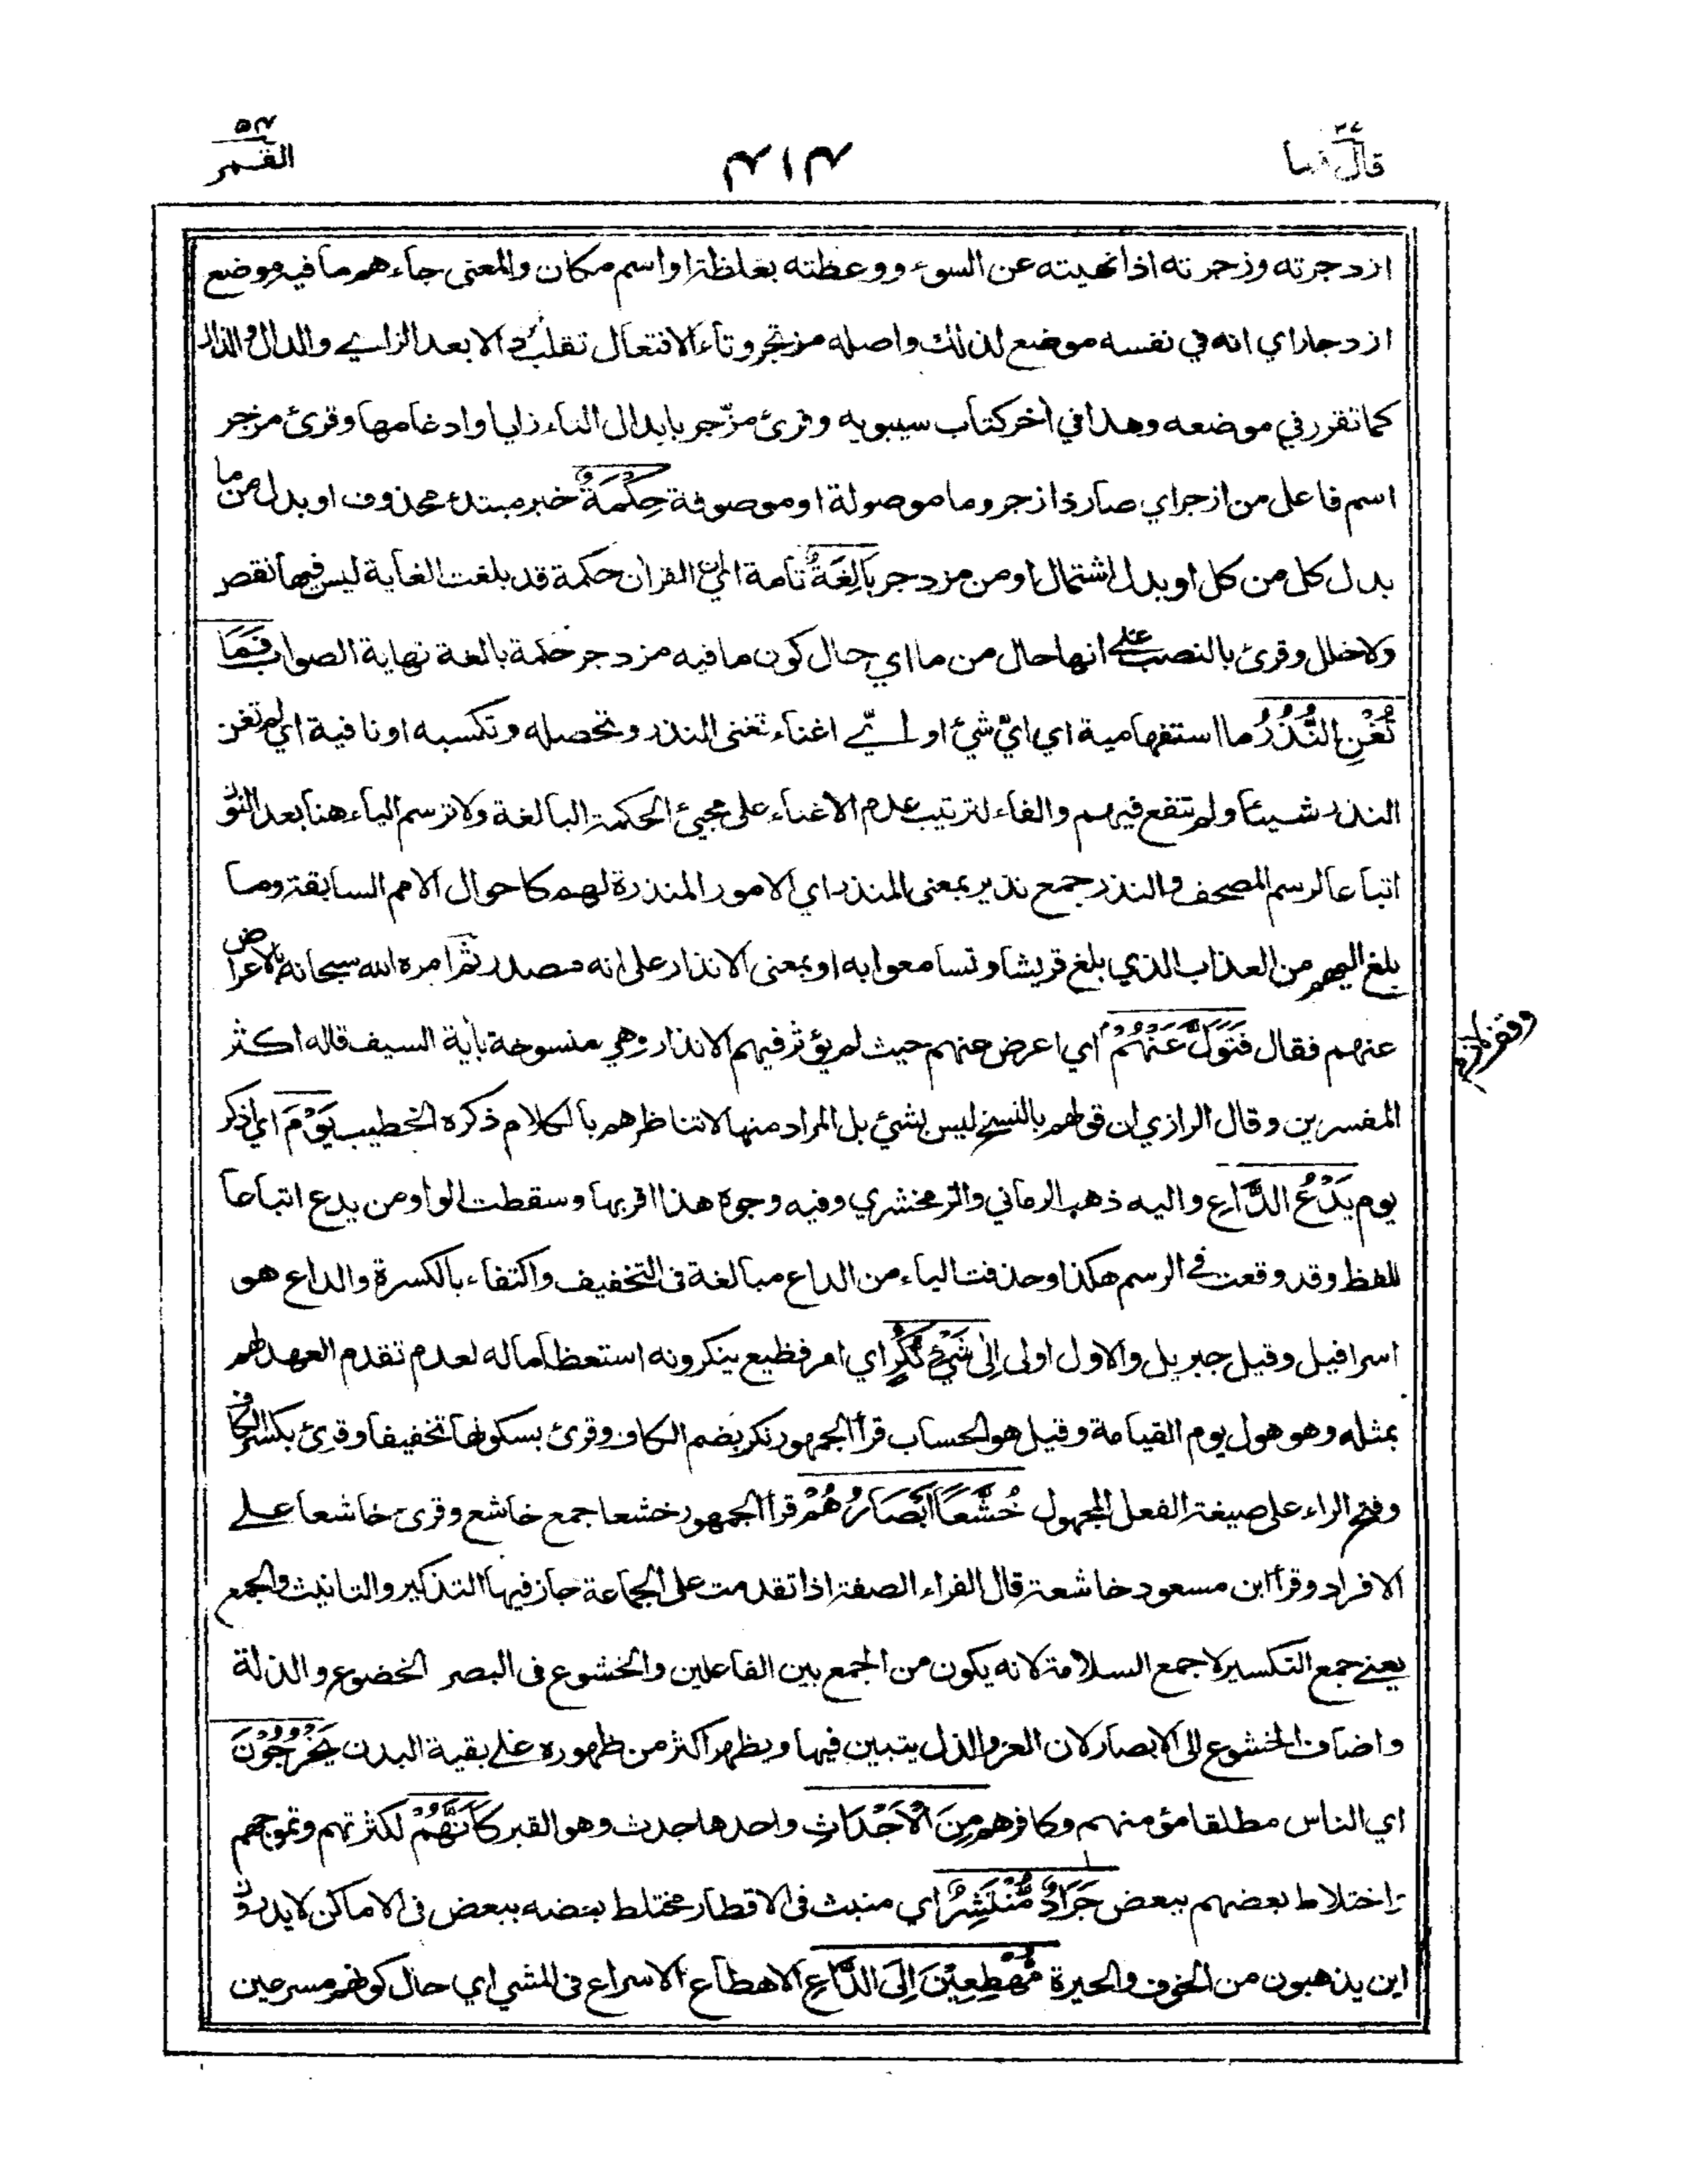 قال فما ٢٧
٤١٤
القمر ٥٤
ازدجرته وزجرته اذا نهيته عن السوء ووعظته بغلظة او اسم مكان والمعنى جاءهم ما فيه موضع
ازدجار اي انه في نفسه موضع لذلك واصله مزتجر وتاء الافتعال تقلب دالا بعد الزاي والدال والذال
كما تقرر في موضعه وهذا في اخر كتاب سيبويه وقرئ مزّجر بابدال التاء زايا وادغامها وقرئ مزجر
اسم فاعل من ازجر اي صار ذا زجر وما موصولة او موصوفة حِكْمَةٌ خبر مبتدء محذوف او بدل من ما
بدل كل من كل او بدل اشتمال او من مزدجر بَالِغَةٌ تامة اي القران حكمة قد بلغت الغاية ليس فيها نقص
ولا خلل وقرئ بالنصب على انها حال من ما اي حال كون ما فيه مزدجر حكمة بالغة نهاية الصواب فَمَا
تُغْنِ النُّذُرُ ما استفهامية اي ايّ شيئ او ايّ اغناء تغنى النذر وتحصله وتكسبه او نافية اي لم تغن
النذر شيئا ولم تنفع فيهم والفاء لترتيب عدم الاغناء على مجيئ الحكمة البالغة ولا ترسم الياء هنا بعد النون
اتباعا لرسم المصحف والنذر جمع نذير بمعنى المنذر اي الامور المنذرة لهم كاحوال الامم السابقة وما
بلغ اليهم من العذاب الذي بلغ قريشا وتسامعوا به او بمعنى الانذار على انه مصدر ثم امره الله سبحانه بالاعراض
عنهم فقال فَتَوَلَّ عَنْهُمْ اي اعرض عنهم حيث لم يؤثر فيهم الانذار وهي منسوخة بأية السيف قاله اكثر
المفسرين وقال الرازي ان قولهم بالنسخ ليس بشيئ بل المراد منها لا تناظرهم بالكلام ذكره الخطيب يَوْمَ اي اذكر
يوم يَدْعُ الدَّاعِ واليه ذهب الرماني والزمخشري وفيه وجوه هذا اقربها وسقطت الواو من يدع اتباعا
للفظ وقد وقعت في الرسم هكذا وحذفت الياء من الداع مبالغة في التخفيف واكتفاء بالكسرة والداع هو
اسرافيل وقيل جبريل والاول اولى اِلٰى شَيْءٍ نُّكُرٍ اي امر فظيع ينكرونه استعظاما له لعدم تقدم العهد لهم
بمثله وهو هول يوم القيامة وقيل هو الحساب قرأ الجمهور نكر بضم الكاف وقرئ بسكونها تخفيفا وقرئ بكسر الكاف
وفتح الراء على صيغة الفعل المجهول خُشَّعًا اَبْصَارُهُمْ قرأ الجمهور خشعا جمع خاشع وقرئ خاشعا على
الافراد وقرأ ابن مسعود خاشعة قال الفراء الصفة اذا تقدمت على الجماعة جاز فيها التذكير والتانيث والجمع
يعني جمع التكسير لا جمع السلامة لانه يكون من الجمع بين الفاعلين والخشوع في البصر الخضوع والذلة
واضاف الخشوع الى الابصار لان العز والذل يتبين فيها ويظهر اكثر من ظهوره على بقية البدن يَخْرُجُوْنَ
اي الناس مطلقا مؤمنهم وكافرهم مِنَ الْاَجْدَاثِ واحدها جدث وهو القبر كَاَنَّهُمْ لكثرتهم وتموجهم
واختلاط بعضهم ببعض جَرَادٌ مُّنْتَشِرٌ اي منبث في الاقطار مختلط بعضه ببعض في الاماكن لا يدرون
اين يذهبون من الخوف والحيرة مُّهْطِعِيْنَ اِلَى الدَّاعِ الاهطاع الاسراع في المشي اي حال كونهم مسرعين
وقف لازم